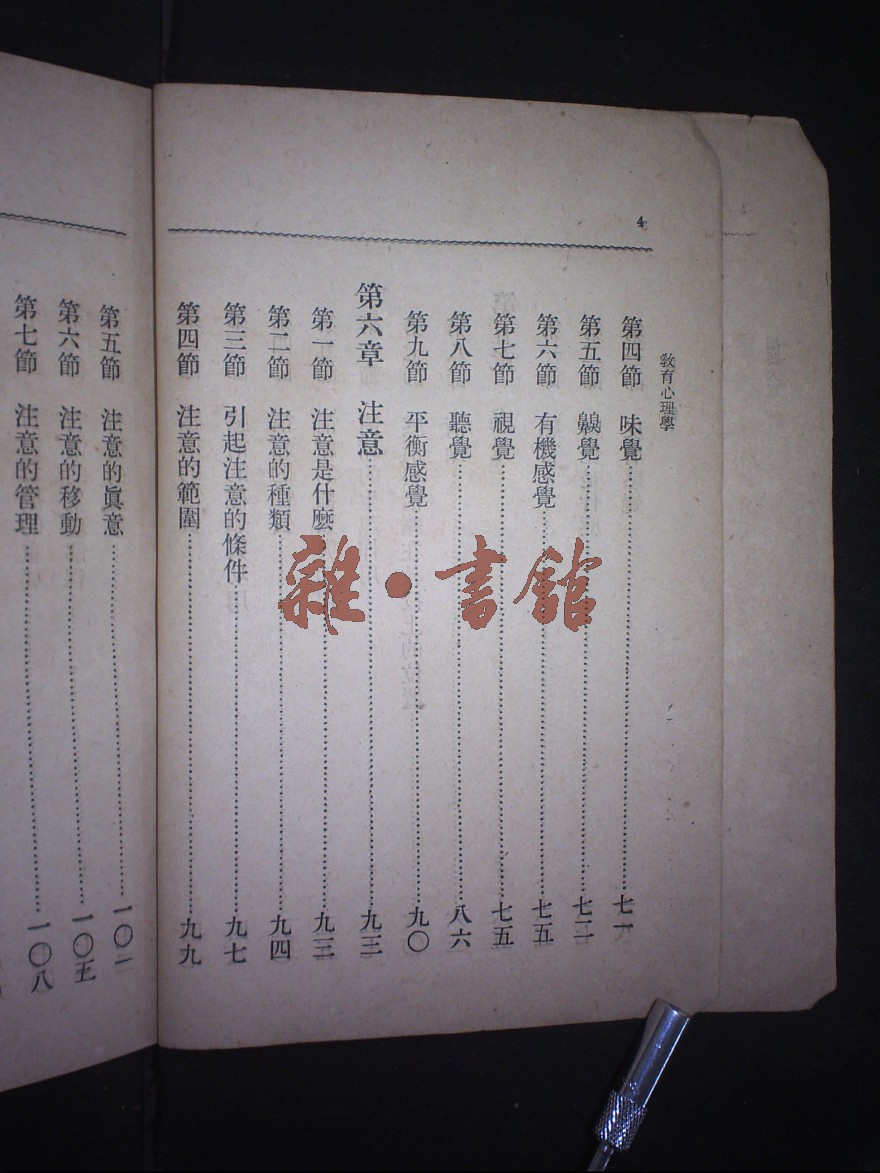 4
教育心理學
第四節　味覺……七一
第五節　齅覺……七二
第六節　有機感覺……七五
第七節　視覺……七五
第八節　聽覺……八六
第九節　平衡感覺……九〇
第六章　注意……九三
第一節　注意是什麼……九三
第二節　注意的種類……九四
第三節　引起注意的條件……九七
第四節　注意的範圍……九九
第五節　注意的眞意……一〇二
第六節　注意的移動……一〇五
第七節　注意的管理……一〇八
雜·書館